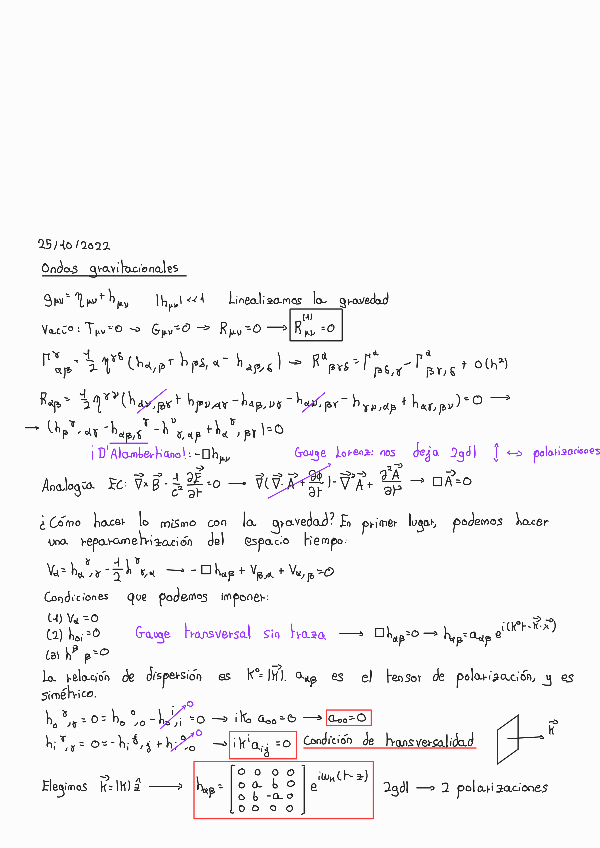 25/10/2022
Ondas gravitacionales
g_μν = η_μν + h_μν |h_μν| <<1 Linealizamos la gravedad
Vacío: T_μν=0 → G_μν=0 → R_μν=0 → R_μν^(1)=0
Γ^γ_αβ = 1/2 η^γδ (h_δα,β + h_βδ,α - h_αβ,δ) → R^α_βγδ = Γ^α_βδ,γ - Γ^α_βγ,δ + O(h²)
R_αβ = 1/2 η^γν (h_αν,βγ + h_βν,αγ - h_αβ,νγ - h_αν,βγ - h_γν,αβ + h_αγ,βν) = 0 →
→ (h_β^γ,αγ - h_αβ,γ^γ - h^γ_γ,αβ + h_α^γ,βγ) = 0
¡D'Alambertiano!: -□h_μν Gauge Lorenz: nos deja 2gdl ↕ ↔ polarizaciones
Analogía EC: ∇×B - 1/c² ∂E/∂t = 0 → ∇(∇·A + ∂φ/∂t) - ∇²A + ∂²A/∂t² → □A=0
¿Cómo hacer lo mismo con la gravedad? En primer lugar, podemos hacer
una reparametrización del espacio tiempo:
V_α = h_α^γ,γ - 1/2 h^γ_γ,α → -□h_αβ + V_β,α + V_α,β = 0
Condiciones que podemos imponer:
(1) V_α = 0
(2) h_0i = 0 Gauge transversal sin traza → □h_αβ=0 → h_αβ = a_αβ e^i(k⁰t - k·x)
(3) h^β_β = 0
La relación de dispersión es k⁰=|k|. a_αβ es el tensor de polarización, y es
simétrico.
h_0^γ,γ = 0 = h_0^0,0 - h_0^i,i = 0 → ik_0 a_00 = 0 → a_00=0
h_i^γ,γ = 0 = -h_i^j,j + h_i^0,0 → ik^i a_ij = 0 Condición de transversalidad k
Elegimos k=|k| ẑ → h_αβ = [0 0 0 0
0 a b 0
0 b -a 0
0 0 0 0] e^iω_k(t-z) 2gdl → 2 polarizaciones